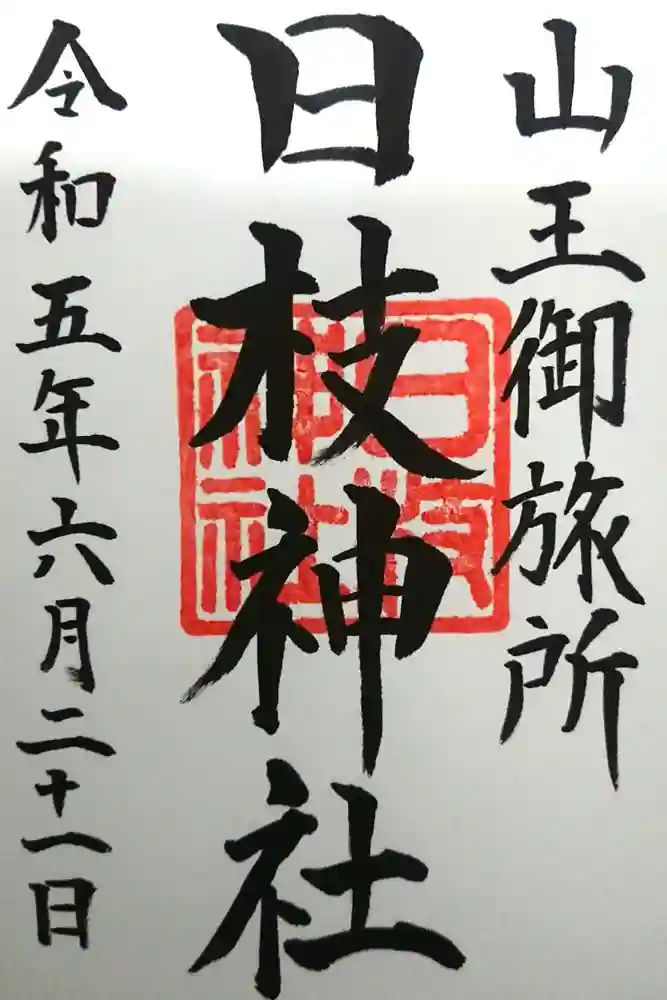 山王御旅所
日枝神社
日枝神社
令和五年六月二十一日